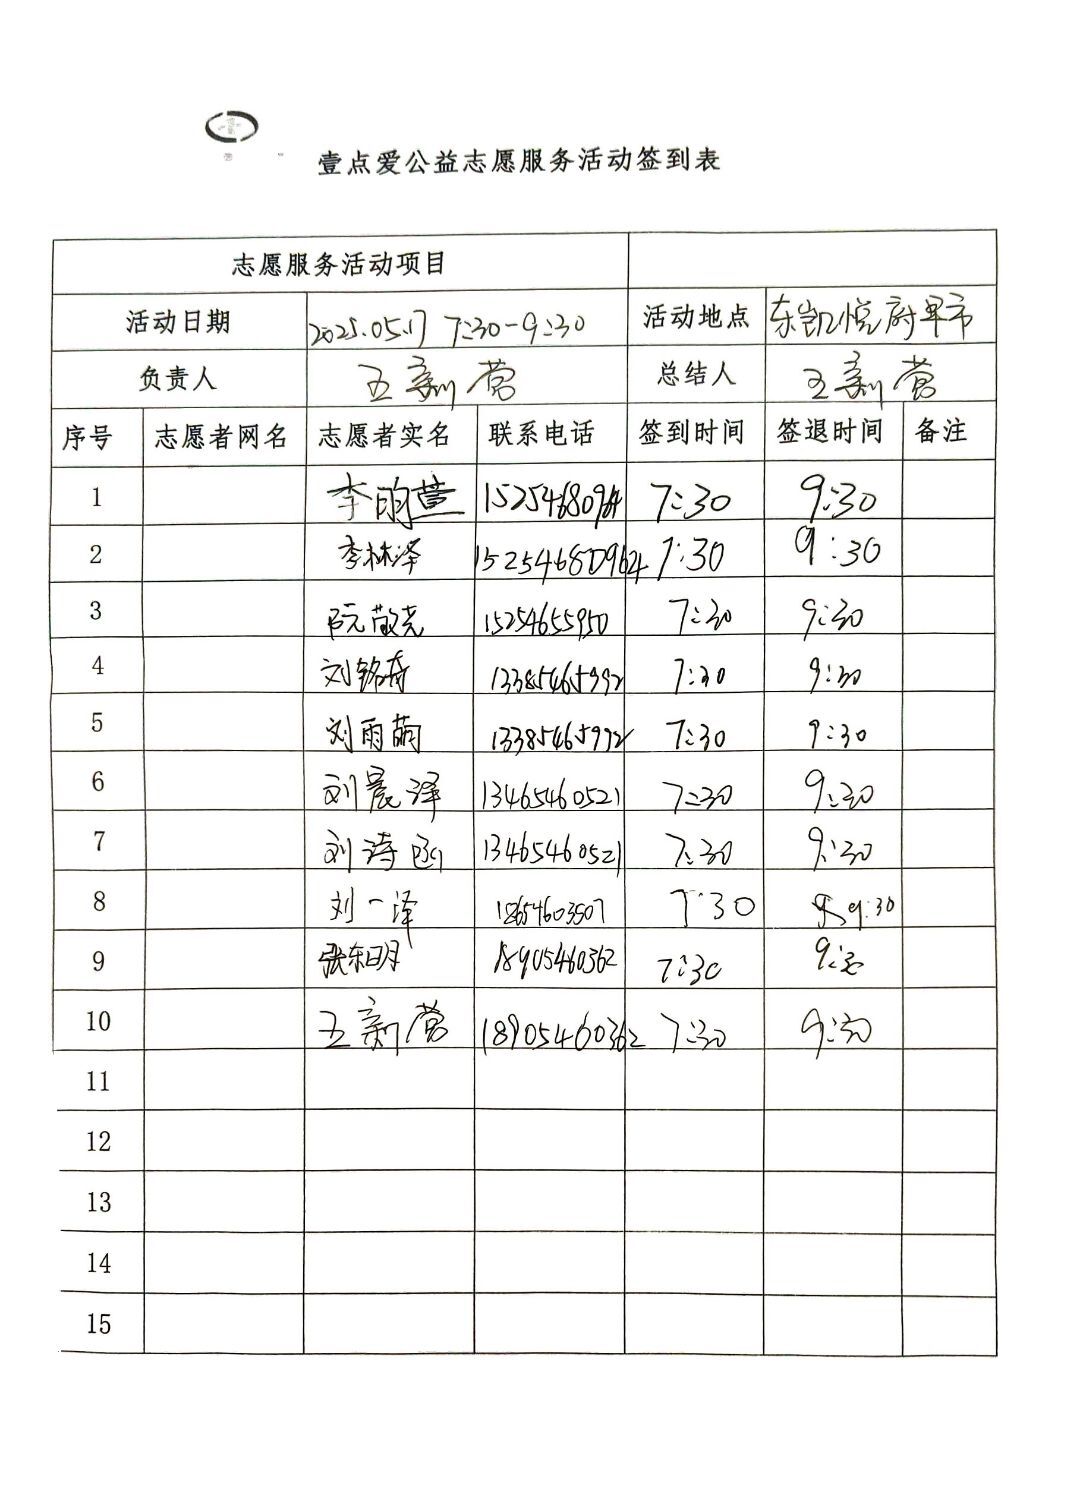 壹点爱公益志愿服务活动签到表
志愿服务活动项目
活动日期 2025.05.17 7:30-9:30 活动地点 东凯悦府早市
负责人 王新营 总结人 王新营
序号 志愿者网名 志愿者实名 联系电话 签到时间 签退时间 备注
1 李昀萱 7:30 9:30
2 李林泽 15254680964 7:30 9:30
3 阮敬尧 15254655950 7:30 9:30
4 13385465992 7:30 9:30
5 刘雨萌 13385465992 7:30 9:30
6 刘晨泽 13465460521 7:30 9:30
7 刘诗函 13465460521 7:30 9:30
8 刘一泽 18654603507 7:30 9:30
9 张东明 18905460362 7:30 9:30
10 王新营 18905460362 7:30 9:30
11
12
13
14
15